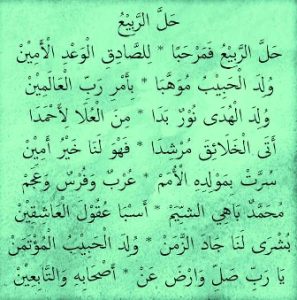 حَلَّ الرَّبِيْعُ
حَلَّ الرَّبِيْعُ فَمَرْحَبًا * لِلصَّادِقِ الْوَعْدِ الْأَمِيْنْ
وُلِدَ الْحَبِيْبُ مُوَهَّبًا * بِأَمْرِ رَبِّ الْعَالَمِيْنْ
وُلِدَ الْهُدَى نُوْرٌ بَدَا * مِنَ الْعُلَا لِأَحْمَدَا
أَتَى الْخَلَائِقَ مُرْشِدَا * فَهْوَ لَنَا خَيْرُ أَمِيْنْ
سُرَّتْ بِمَوْلِدِهِ الْأُمَمْ * عُرْبٌ وَفُرْسٌ وَعَجَمْ
مُحَمَّدٌ بَاهِي الشِّيَمْ * أَسْبَا عُقُوْلَ الْعَاشِقِيْنْ
بُشْرَى لَنَا جَادَ الزَّمَنْ * وُلِدَ الْحَبِيْبُ الْمُؤْتَمَنْ
يَا رَبِّ صَلِّ وَارْضَ عَنْ * أَصْحَابِهِ وَالتَّابِعِيْنْ